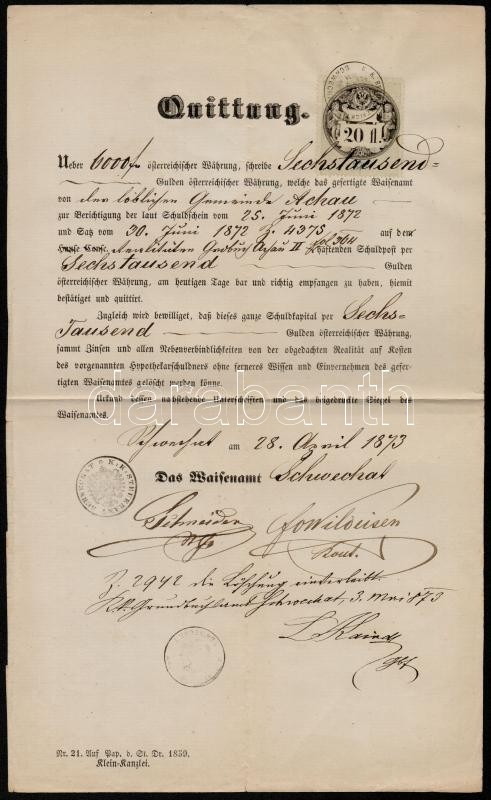 Quittung.
20 fl.
Ueber 6000 f österreichischer Währung, schreibe Sechstausend
Gulden österreichischer Währung, welche das gefertigte Waisenamt
von der löblichen Gemeinde Achau
zur Berichtigung der laut Schuldschein vom 25. Juni 1872
und Satz vom 30. Juni 1872 Z. 4375 auf dem
Grdbuch Achau II fol 304 haftenden Schuldpost per
Sechstausend Gulden
österreichischer Währung, am heutigen Tage bar und richtig empfangen zu haben, hiemit
bestätiget und quittirt.
Zugleich wird bewilliget, daß dieses ganze Schuldkapital per Sechs-
Tausend Gulden österreichischer Währung,
sammt Zinsen und allen Nebenverbindlichkeiten von der obgedachten Realität auf Kosten
des vorgenannten Hypothekarschuldners ohne ferneres Wissen und Einvernehmen des gefer-
tigten Waisenamtes gelöscht werden könne.
Urkund dessen nachstehende Unterschriften und das beigedruckte Siegel des
Waisenamtes.
darabanth
Schwechat am 28. April 1873
Das Waisenamt Schwechat
Schneider
Z. 2942 die Löschung einverleibt.
K.k. Grundbuchsamt Schwechat, 3. Mai 1873
Nr. 21. Auf Pap. d. St. Dr. 1859.
Klein-Kanzlei.